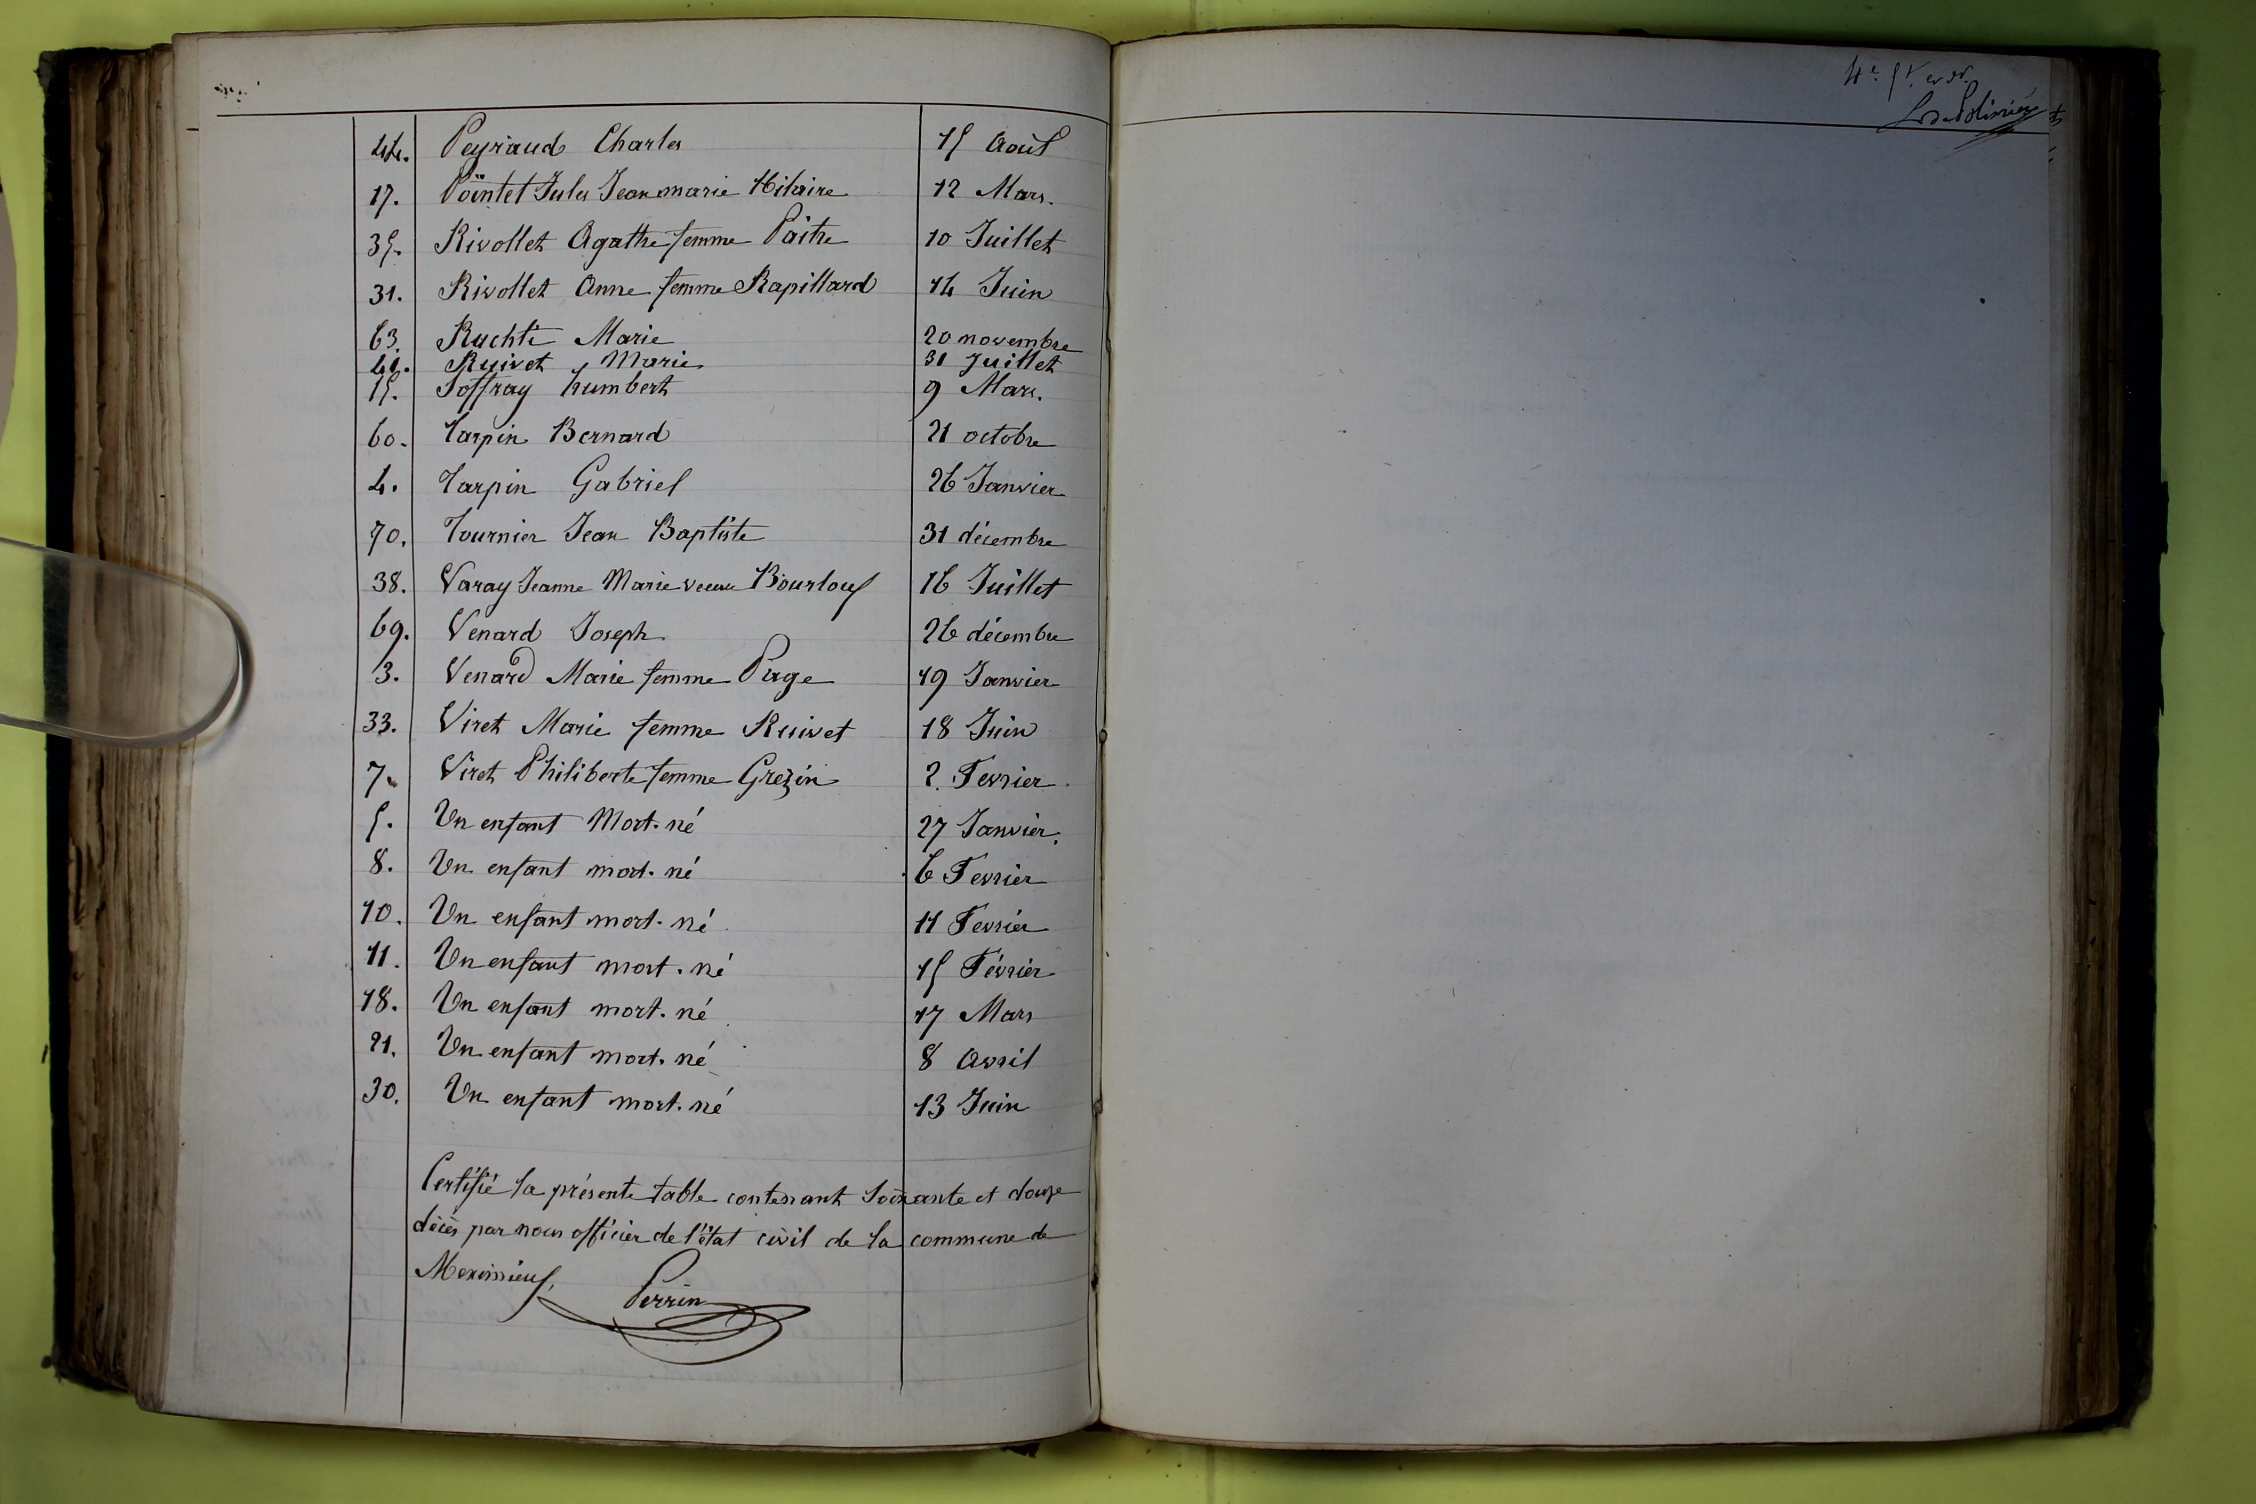 44. Peyraud Charles 15 Août
17. Pointet Jules Jean marie Hilaire 12 Mars.
35. Rivollet Agathe femme Paitre 10 Juillet
31. Rivollet Anne femme Rapillard 14 Juin
63. Ruchti Marie 20 novembre
41. Ruivet Marie 31 Juillet
15. Soffray humbert 9 Mars.
60. Tarpin Bernard 21 octobre
4. Tarpin Gabriel 26 Janvier
70. Tournier Jean Baptiste 31 décembre
38. Varay Jeanne Marie veuve Bourlouf 16 Juillet
69. Venard Joseph 26 décembre
3. Venard Marie femme Page 19 Janvier
33. Viret Marie femme Ruivet 18 Juin
7. Viret Philiberte femme Grezin 2. Fevrier
5. Un enfant Mort-né 27 Janvier.
8. Un enfant mort-né 6 Fevrier
10. Un enfant mort-né 11 Fevrier
11. Un enfant mort-né 15 Février
18. Un enfant mort-né 17 Mars
21. Un enfant mort-né 8 Avril
30. Un enfant mort-né 13 Juin
Certifié la présente table contenant soixante et douze
décès par nous officier de l'état civil de la commune de
Meximieux,
Perrin